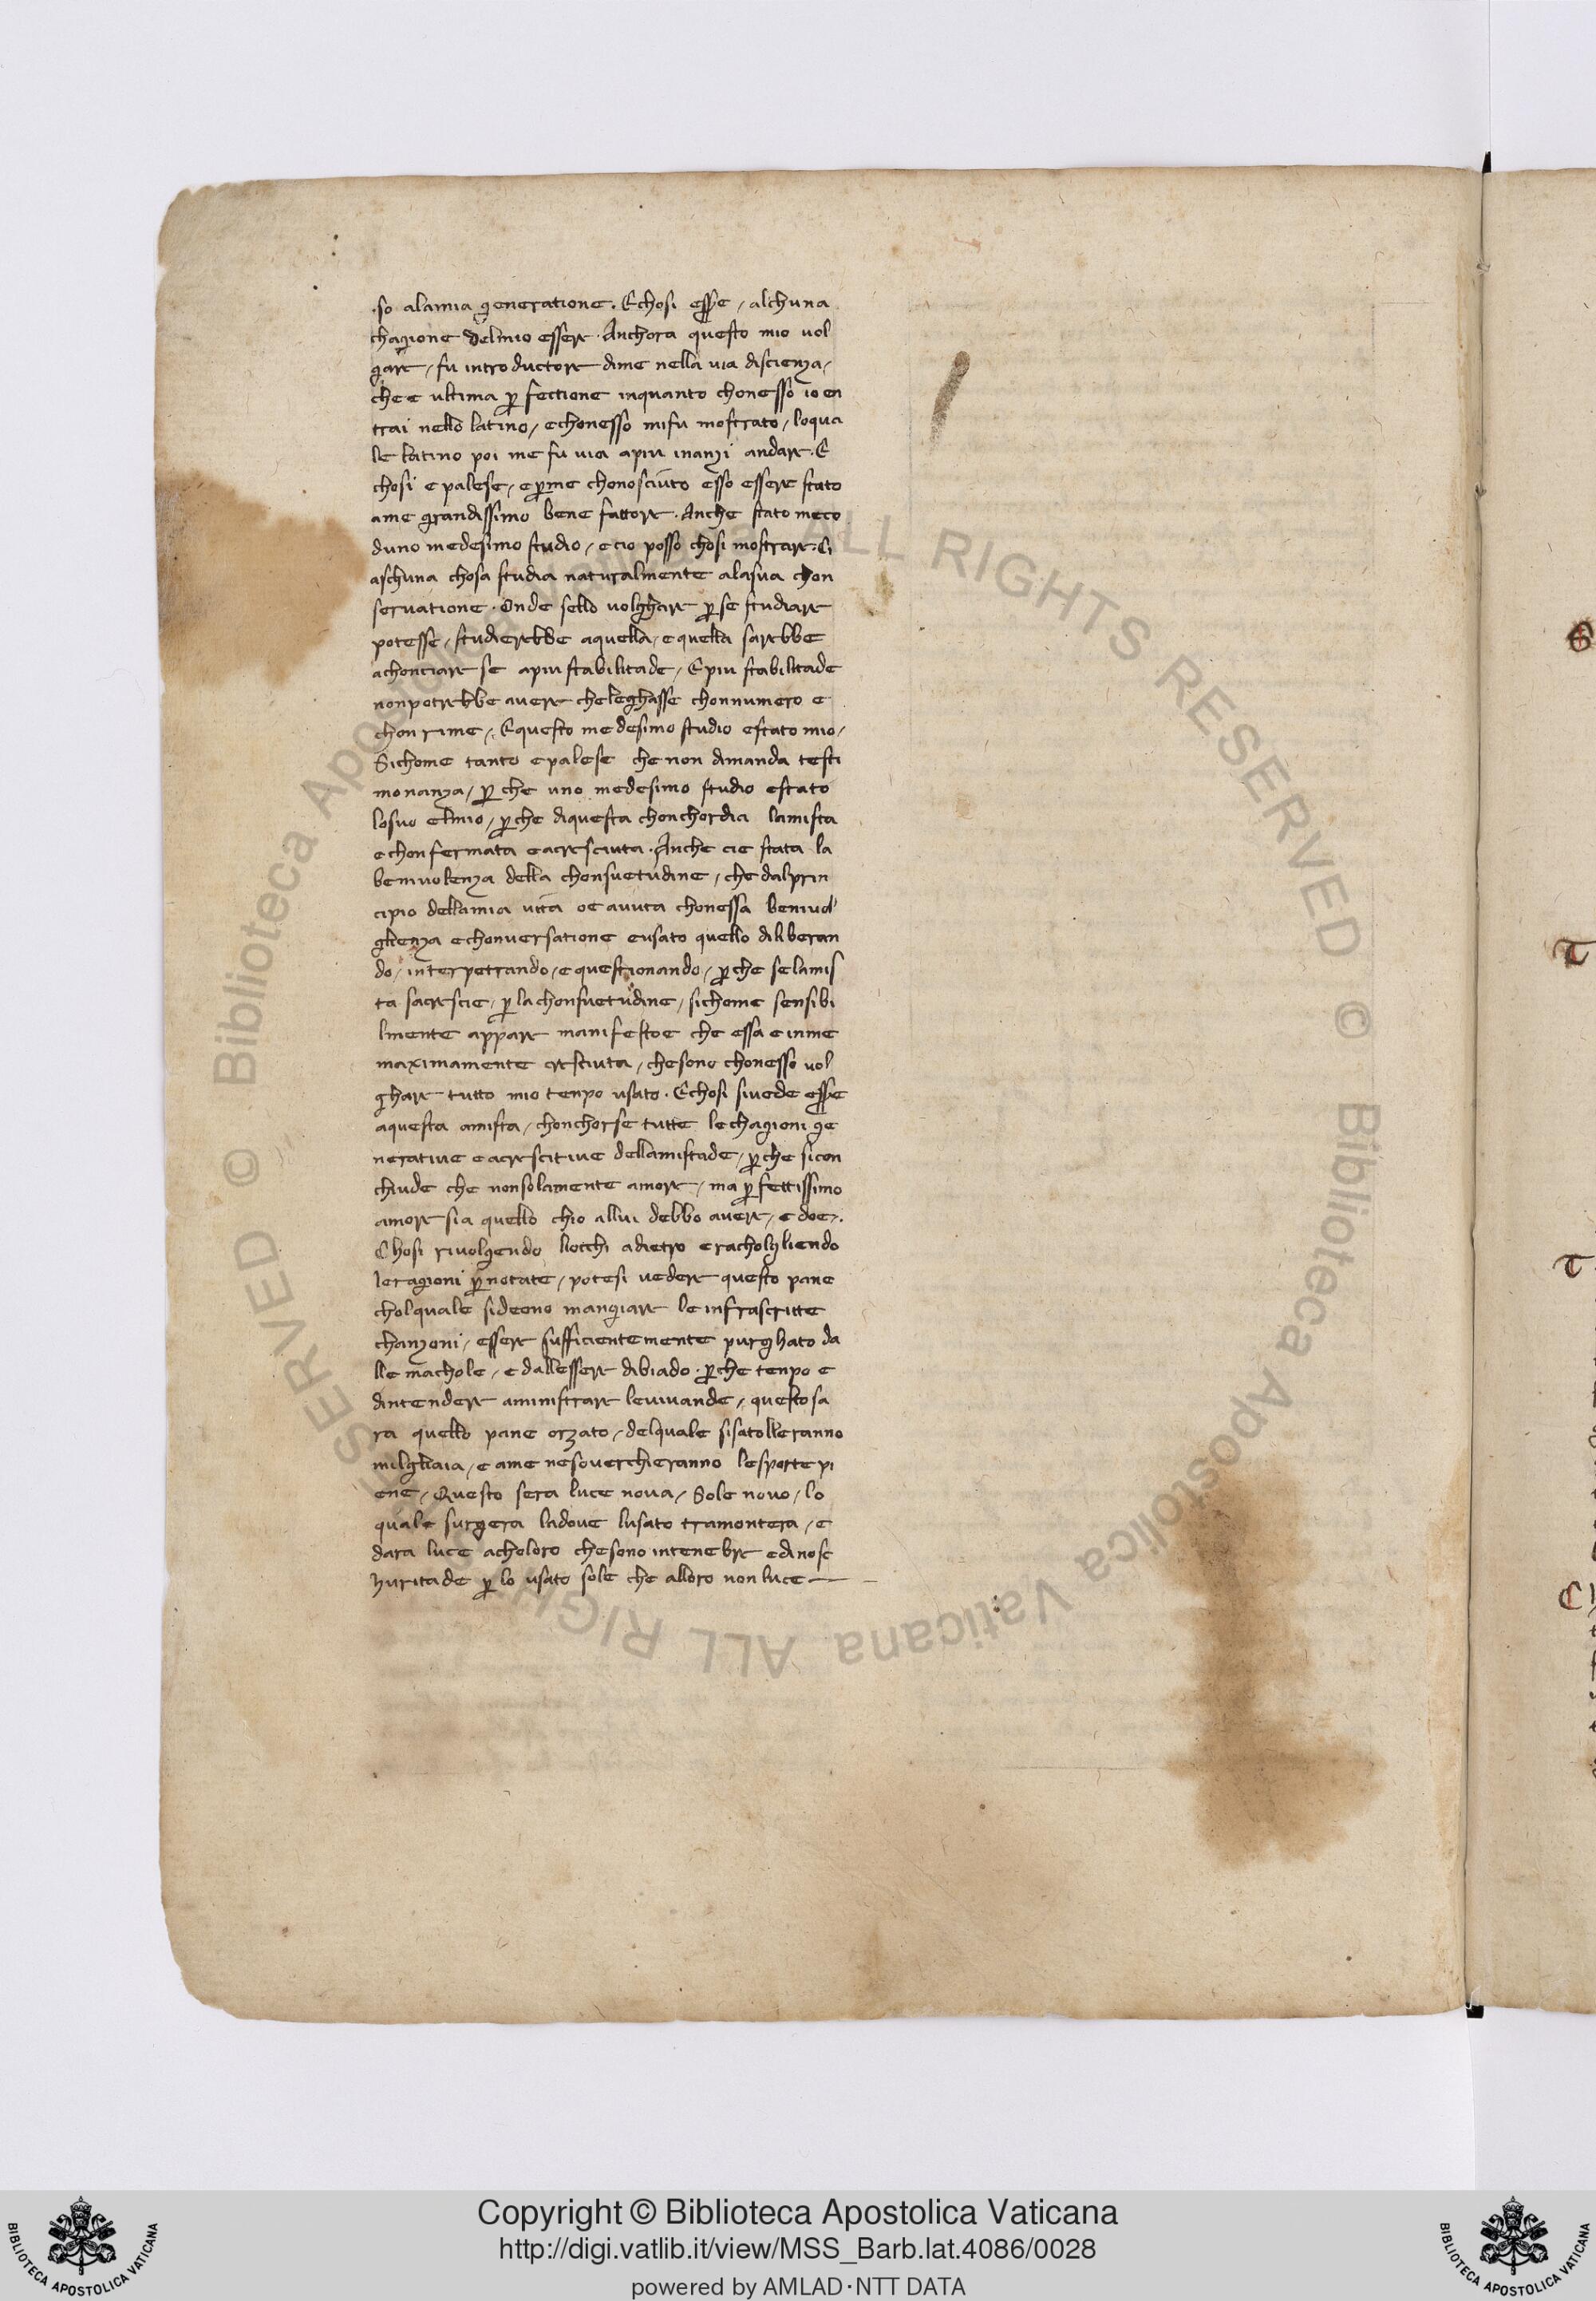 so alamia generatione. Echosi essere / alchuna
chagione delmio essere. Anchora questo mio uol
gare / fu introductore dime nella uia discienza /
che e ultima perfectione inquanto chonesso io en
trai nello latino / echonesso mifu mostrato / loqua
le latino poi me fu uia apiu inanzi andare. E
chosi e palese / e perme chonosciuto esso essere stato
ame grandissimo bene fattore. Anche stato meco
duno medesimo studio / ecio posso chosi mostrare. Ci
aschuna chosa studia naturalmente alasua chon
seruatione. Onde sello uolghare per se studiare
potesse / studierebbe aquella / e quella sarebbe
achonciare se apiu stabilitade / Epiu stabilitade
nonpotrebbe auere cheleghasse chonnumero e
chon rime / Equesto medesimo studio estato mio /
Sichome tanto epalese che non dimanda testi
monanza / per che uno medesimo studio estato
losuo elmio / perche diquesta chonchordia lamista
echonfermata eacresciuta. Anche cie stata la
beniuolenza della chonsuetudine / che dalprin
cipio dellamia uita oe auuta chonessa beniuol
glienza echonuersatione eusato quello diliberan
do / interpetrando / e questionando / perche selamis
ta sacrescie / per lachonsuetudine / sichome sensibi
lmente appare manifestoe che essa e inme
maximamente cresciuta / chesono chonesso uol
ghare tutto mio tenpo usato. Echosi siuede essere
aquesta amista / chonchorse tutte lechagioni ge
neratiue eacrescitiue dellamistade / perche sicon
chiude che nonsolamente amore / ma perfettissimo
amore sia quello chio allui debbo auere / e doe /.
Chosi riuolgendo liocchi adietro eracholgliendo
leragioni prenotate / potesi uedere questo pane
cholquale sideono mangiare le infrascritte
chanzoni / essere sufficientemente purghato da
lle machole / e dallessere dibiado. perche tenpo e
dintendere aministrare leuiuande / questo sa
ra quello pane orzato / delquale sisatolleranno
milgliaia / e ame nesouerchieranno lesporte pi
ene / Questo sera luce noua / Sole nouo / lo
quale surgera ladoue lusato tramontera / e
dara luce acholoro chesono intenebre edinosc
huritade per lo usato sole che alloro non luce
Copyright © Biblioteca Apostolica Vaticana
http://digi.vatlib.it/view/MSS_Barb.lat.4086/0028
powered by AMLAD·NTT DATA